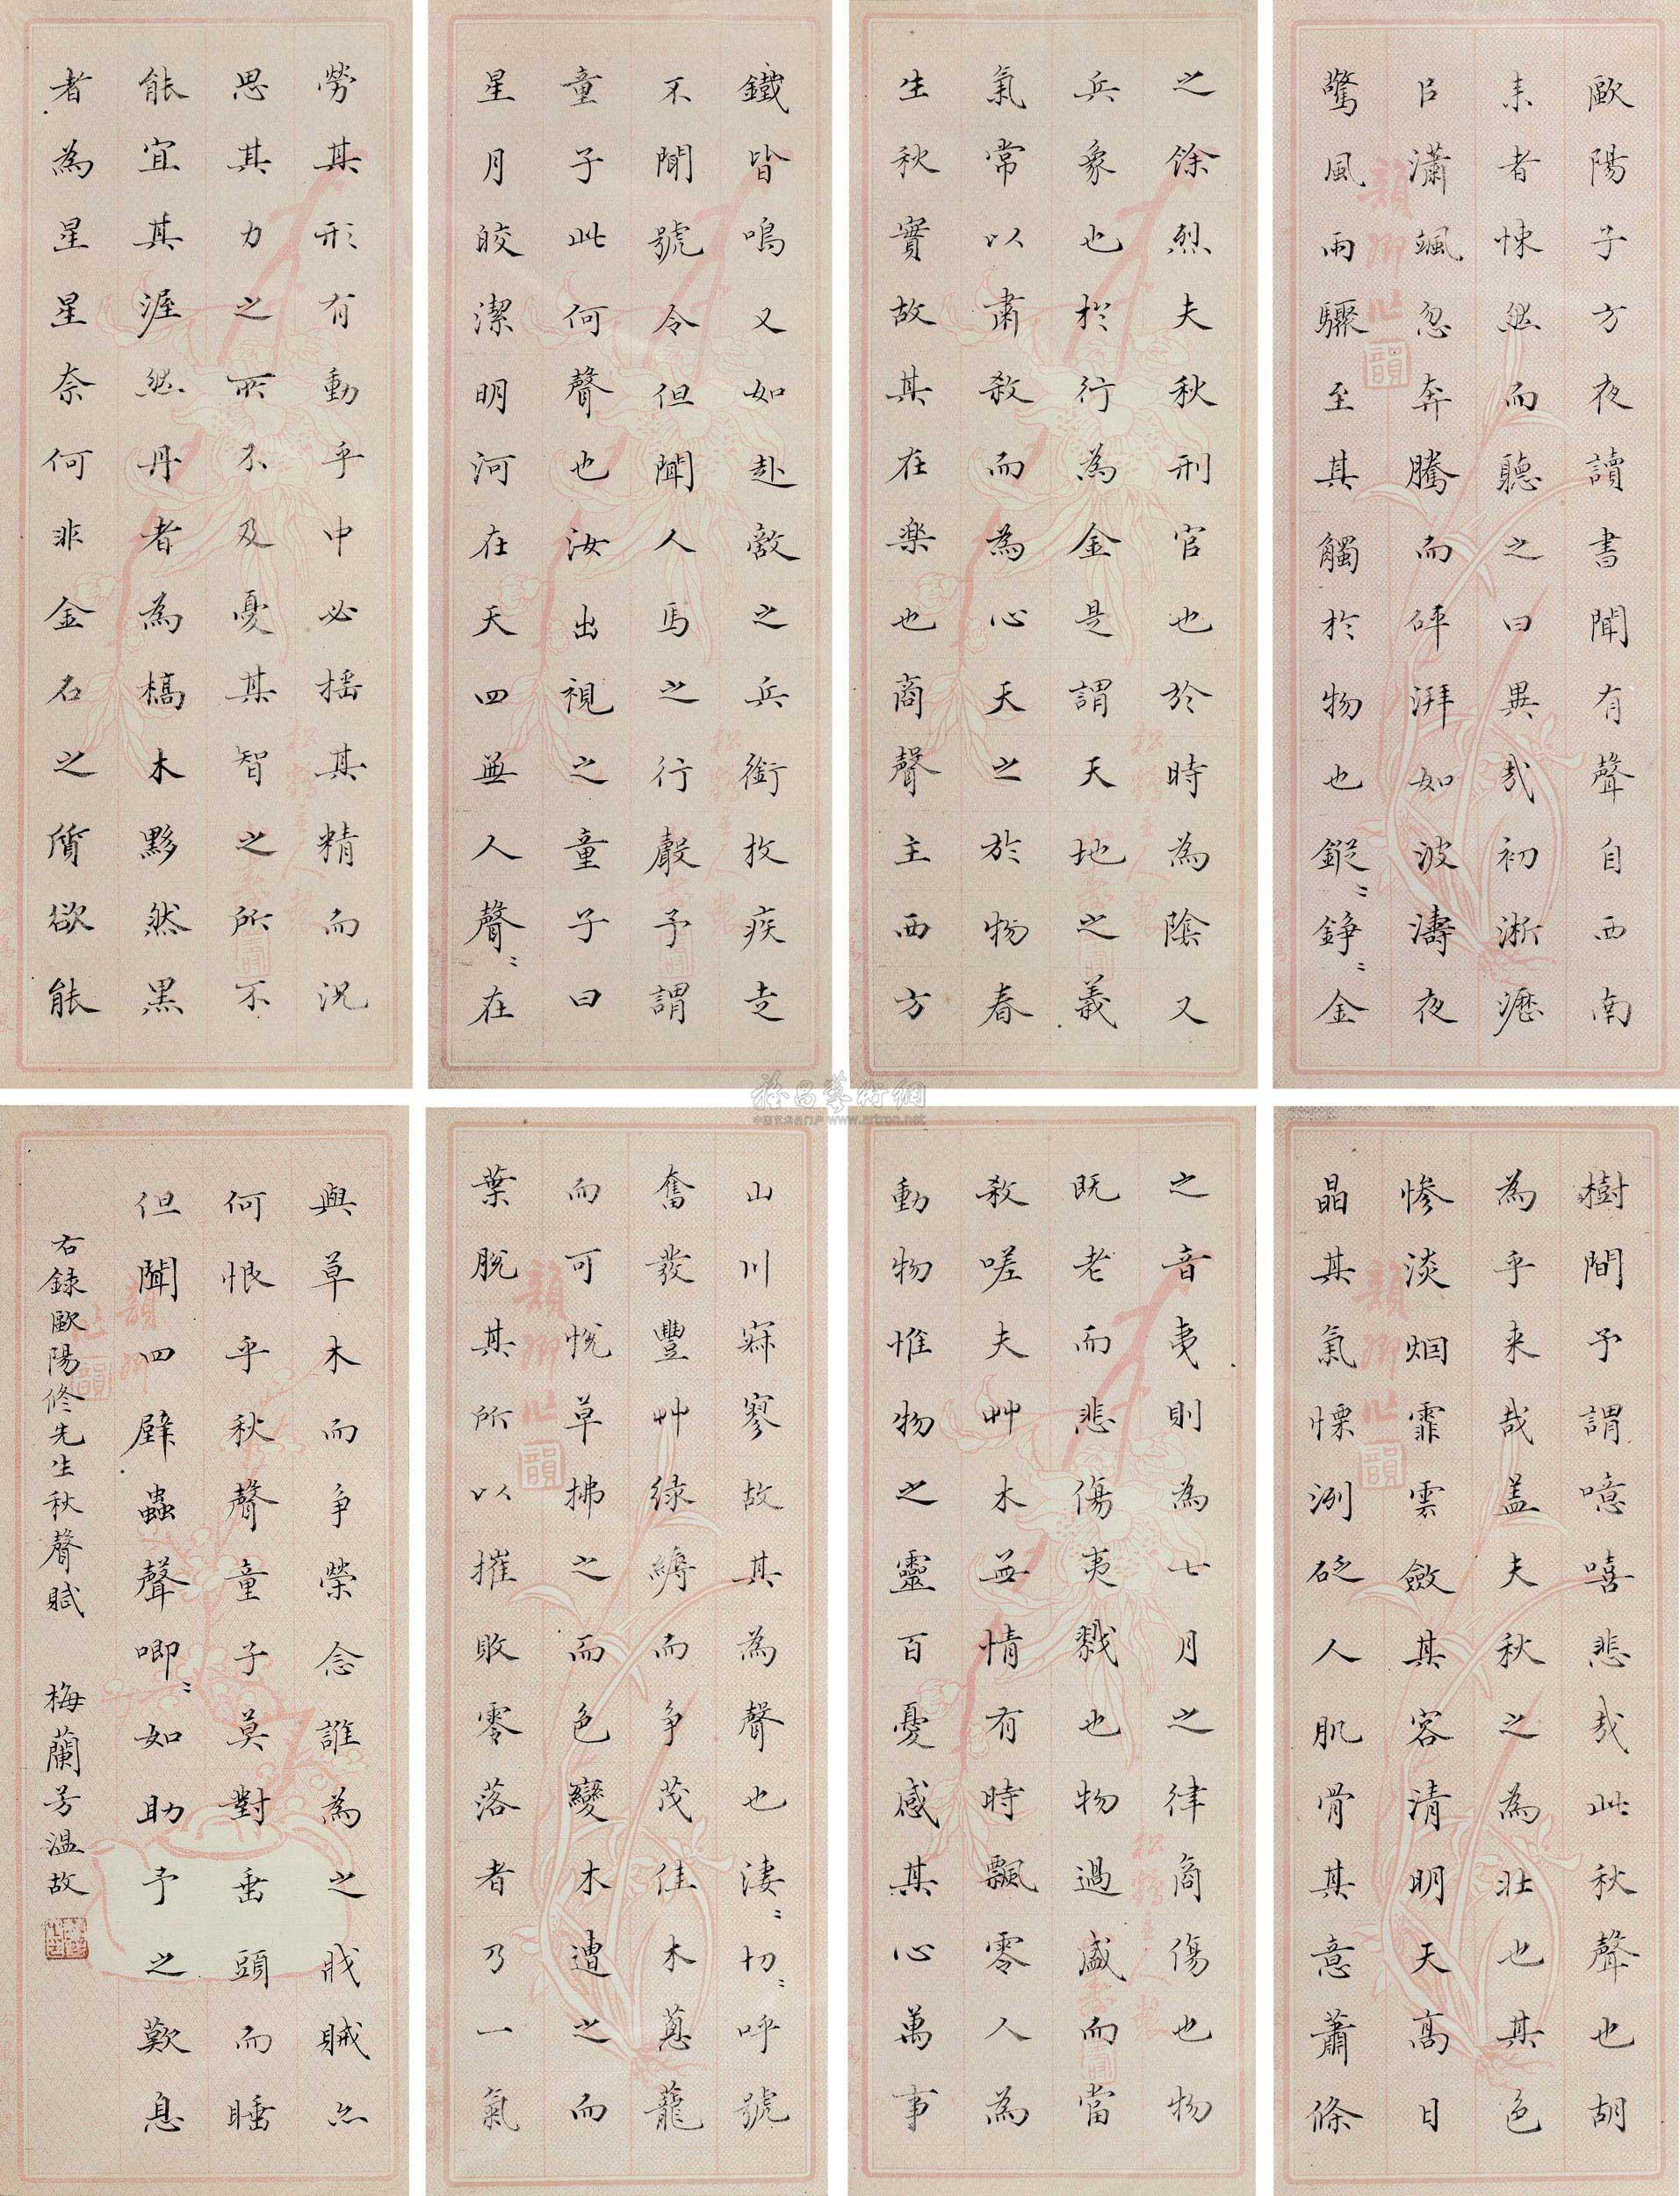 歐陽子方夜讀書聞有聲自西南
来者悚然而聽之曰異哉初淅瀝
㠯瀟颯忽奔騰而砰湃如波濤夜
驚風雨驟至其觸於物也鏦〻錚〻金
鐵皆鳴又如赴敵之兵銜枚疾走
不聞號令但聞人馬之行聲予謂
童子此何聲也汝出視之童子曰
星月皎潔明河在天四無人聲〻在
樹間予謂噫嘻悲哉此秋聲也胡
為乎来哉盖夫秋之為壯也其色
慘淡烟霏雲斂其容清明天高日
晶其氣慄洌砭人肌骨其意蕭條
山川寂寥故其為聲也淒〻切〻呼號
奮發豐艸綠縟而争茂佳木蔥蘢
而可悅草拂之而色變木遭之而
葉脫其所以摧敗零落者乃一氣
之餘烈夫秋刑官也於時為陰又
兵象也於行為金是謂天地之義
氣常以肅殺而為心天之於物春
生秋實故其在樂也商聲主西方
之音夷則為七月之律商傷也物
既老而悲傷夷戮也物過盛而當
殺嗟夫艸木無情有時飄零人為
動物惟物之靈百憂感其心萬事
勞其形有動乎中必搖其精而況
思其力之所不及憂其智之所不
能宜其渥然丹者為槁木黟然黑
者為星星奈何非金石之質欲能
與草木而争榮念誰為之戕賊亦
何恨乎秋聲童子莫對垂頭而睡
但聞四壁蟲聲唧〻如助予之歎息
右録歐陽修先生秋聲賦 梅蘭芳溫故
雅昌藝術網
中国艺术品门户 www.artron.net